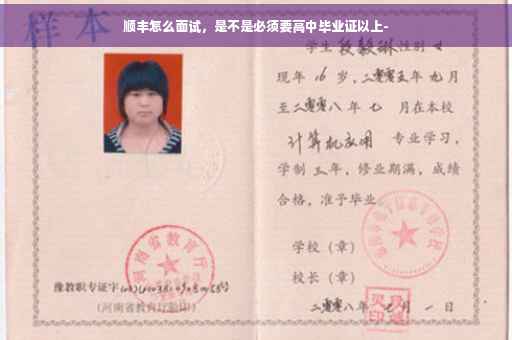 顺丰怎么面试，是不是必须要高中毕业证以上-
样本
学生 段毅琳 性别 女
现年 16 岁，二零零五年 九 月
至二零零八 年 七 月在本校
计算机应用 专业学习，
学制 三 年，修业期满，成绩
合格，准予毕业
学校（章）
校长（章）
二零零八年 七 月 一 日
河南省教育厅
豫教职专证字
（河南省教育厅验印）